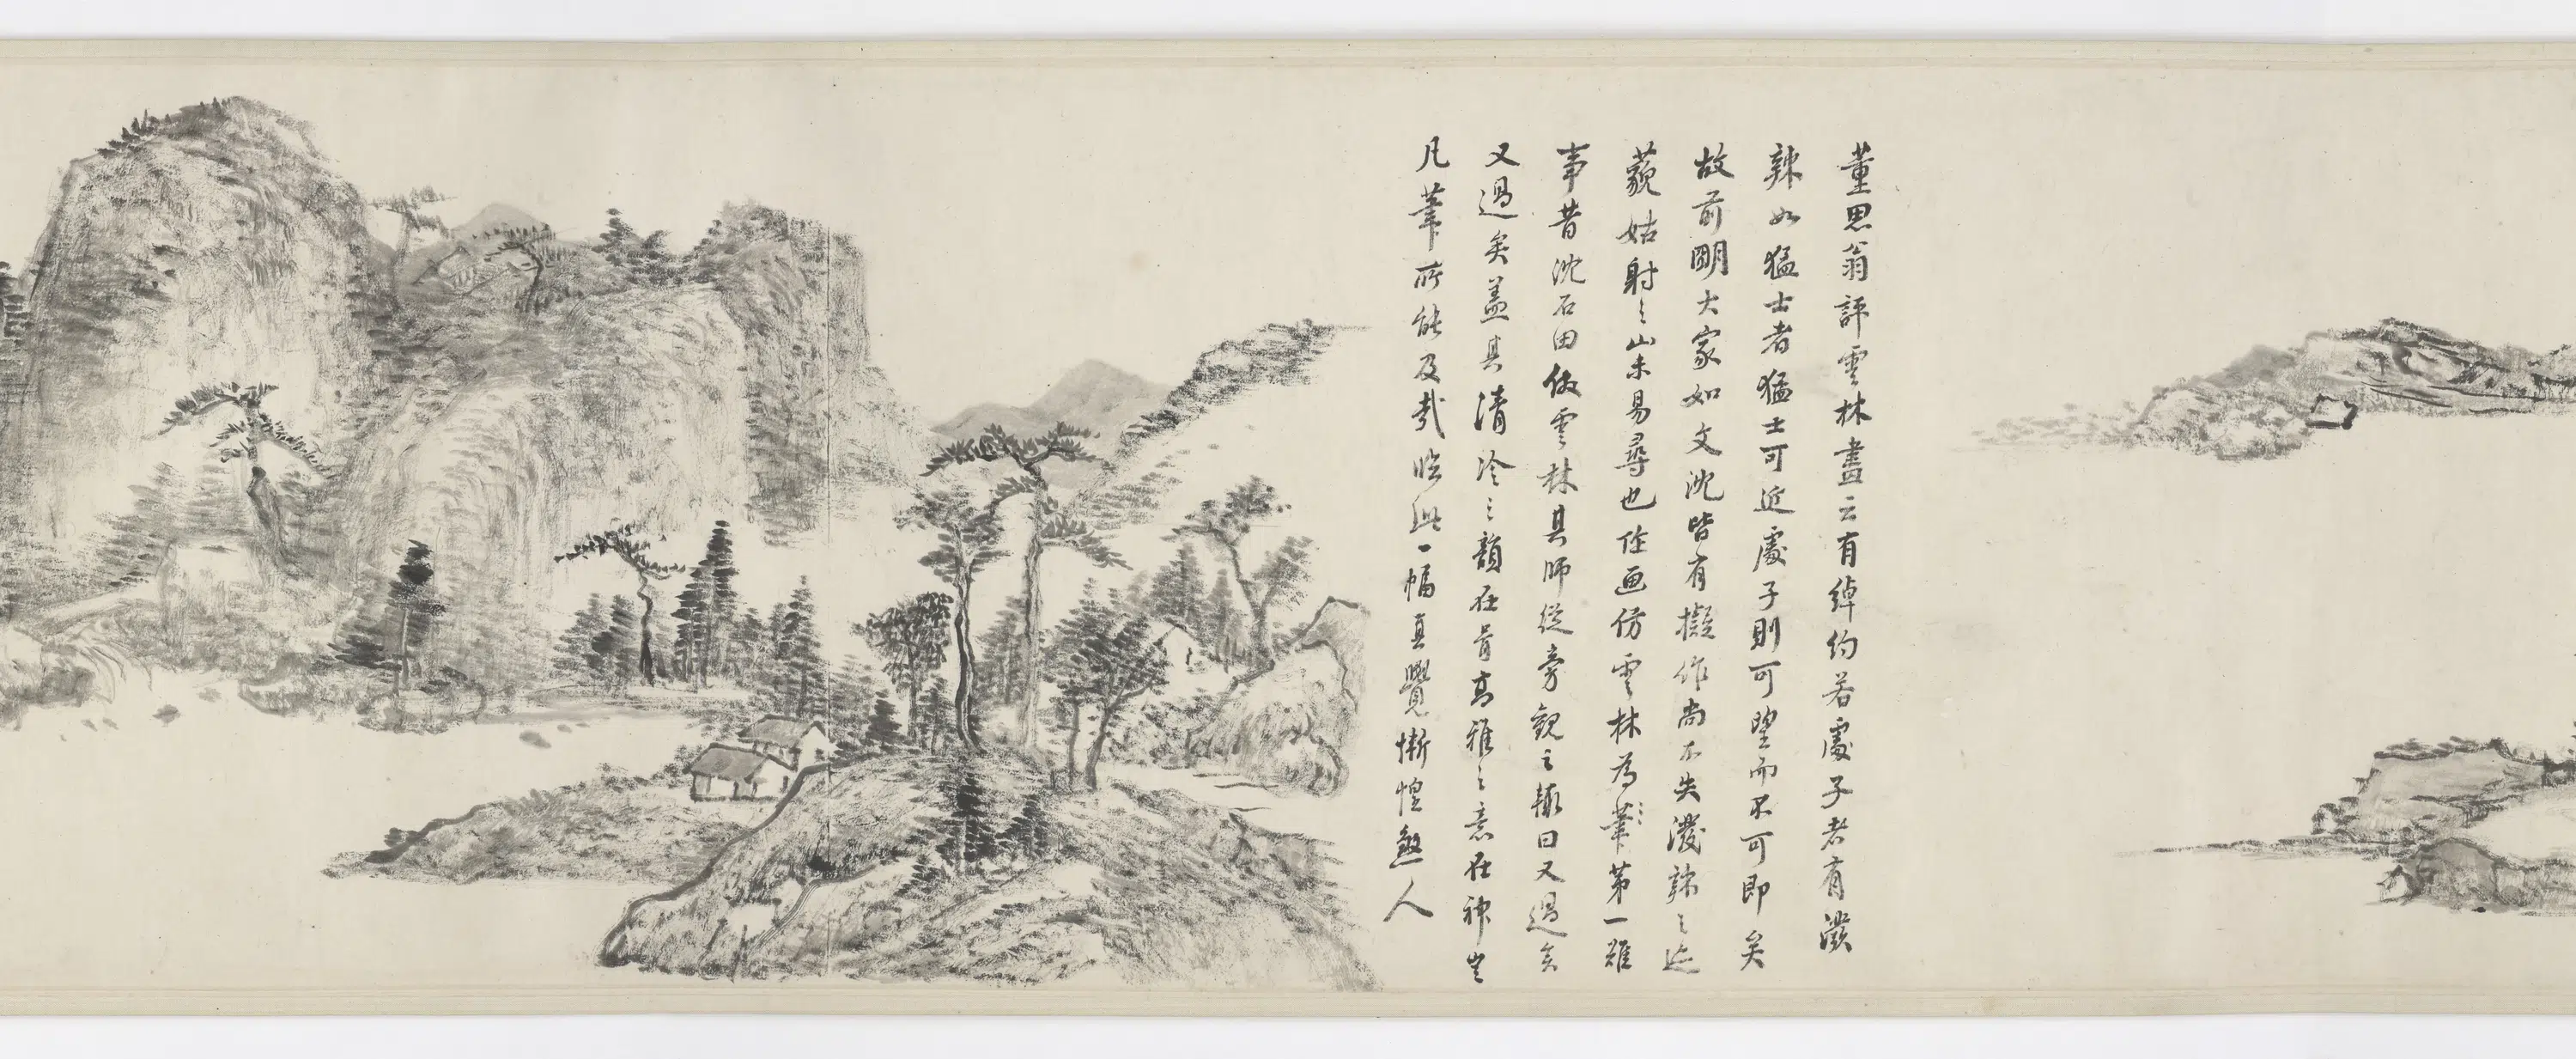 董思翁評雲林畫云有綽約若處子者有潑
辣如猛士者猛士可近處子則可望而不可即矣
故前明大家如文沈皆有擬作尚不失潑辣之迹
藐姑射之山未易尋也作画仿雲林為筆〻第一難
事昔沈石田倣雲林其師從旁觀之輒曰又過矣
又過矣蓋其清冷之韻在骨高雅之意在神豈
凡筆所能及哉臨此一幅真覺慚惶煞人